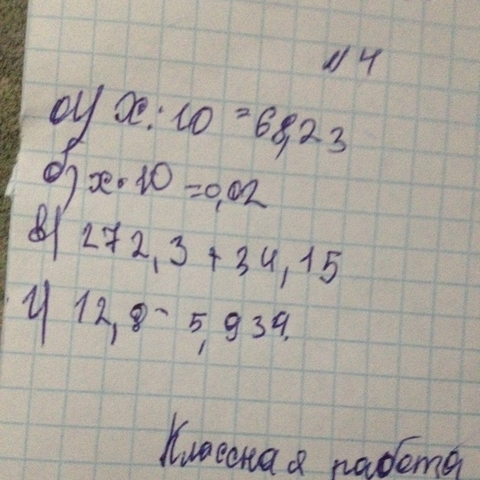 № 4
а) x : 10 = 68,23
б) x · 10 = 0,02
в) 272,3 + 34,15
г) 12,8 - 5,939.
Классная работа